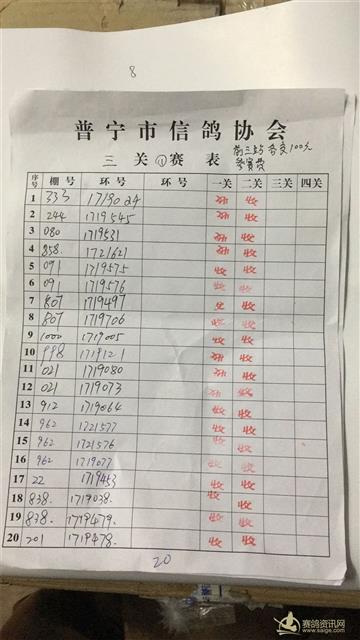 8
普宁市信鸽协会
三关①赛表
前三的各交100元
参赛费
序号 棚号 环号 环号 一关 二关 三关 四关
1 333 1719024 收
2 244 1719545 收
3 080 1719531 收
4 858. 1721621 收
5 091 1719575 收 收
6 091 1719576 收 收
7 807 1719497 收
8 807 1719706 收 收
9 1000 1719005 收 收
10 998 1719121 收
11 021 1719080 收
12 021 1719073 收
13 912 1719064 收 收
14 962 1721577 收 收
15 962 1721576 收 收
16 962 1719077 收 收
17 22 1719453 收 收
18 838. 1719038. 收 收
19 838. 1719479. 收 收
20 201 1719478. 收 收
20
赛鸽资讯网
www.saige.com